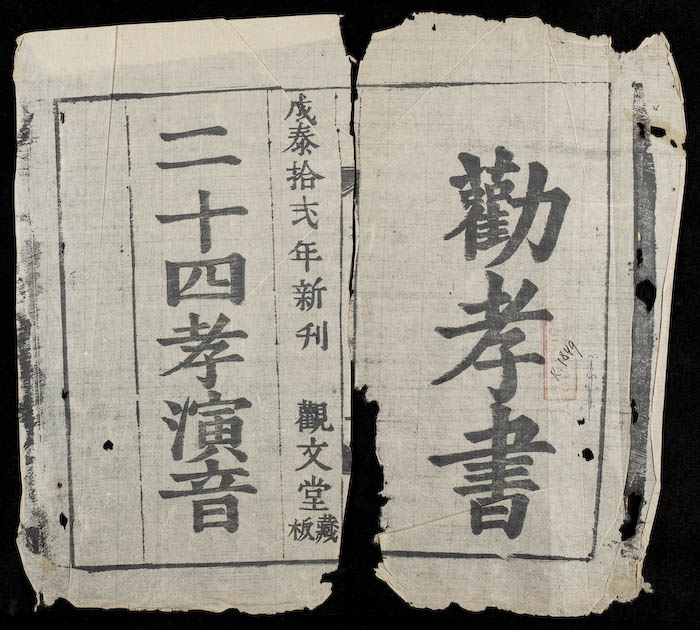 勸孝書
R.1849
成泰拾弍年新刊
觀文堂藏板
二十四孝演音